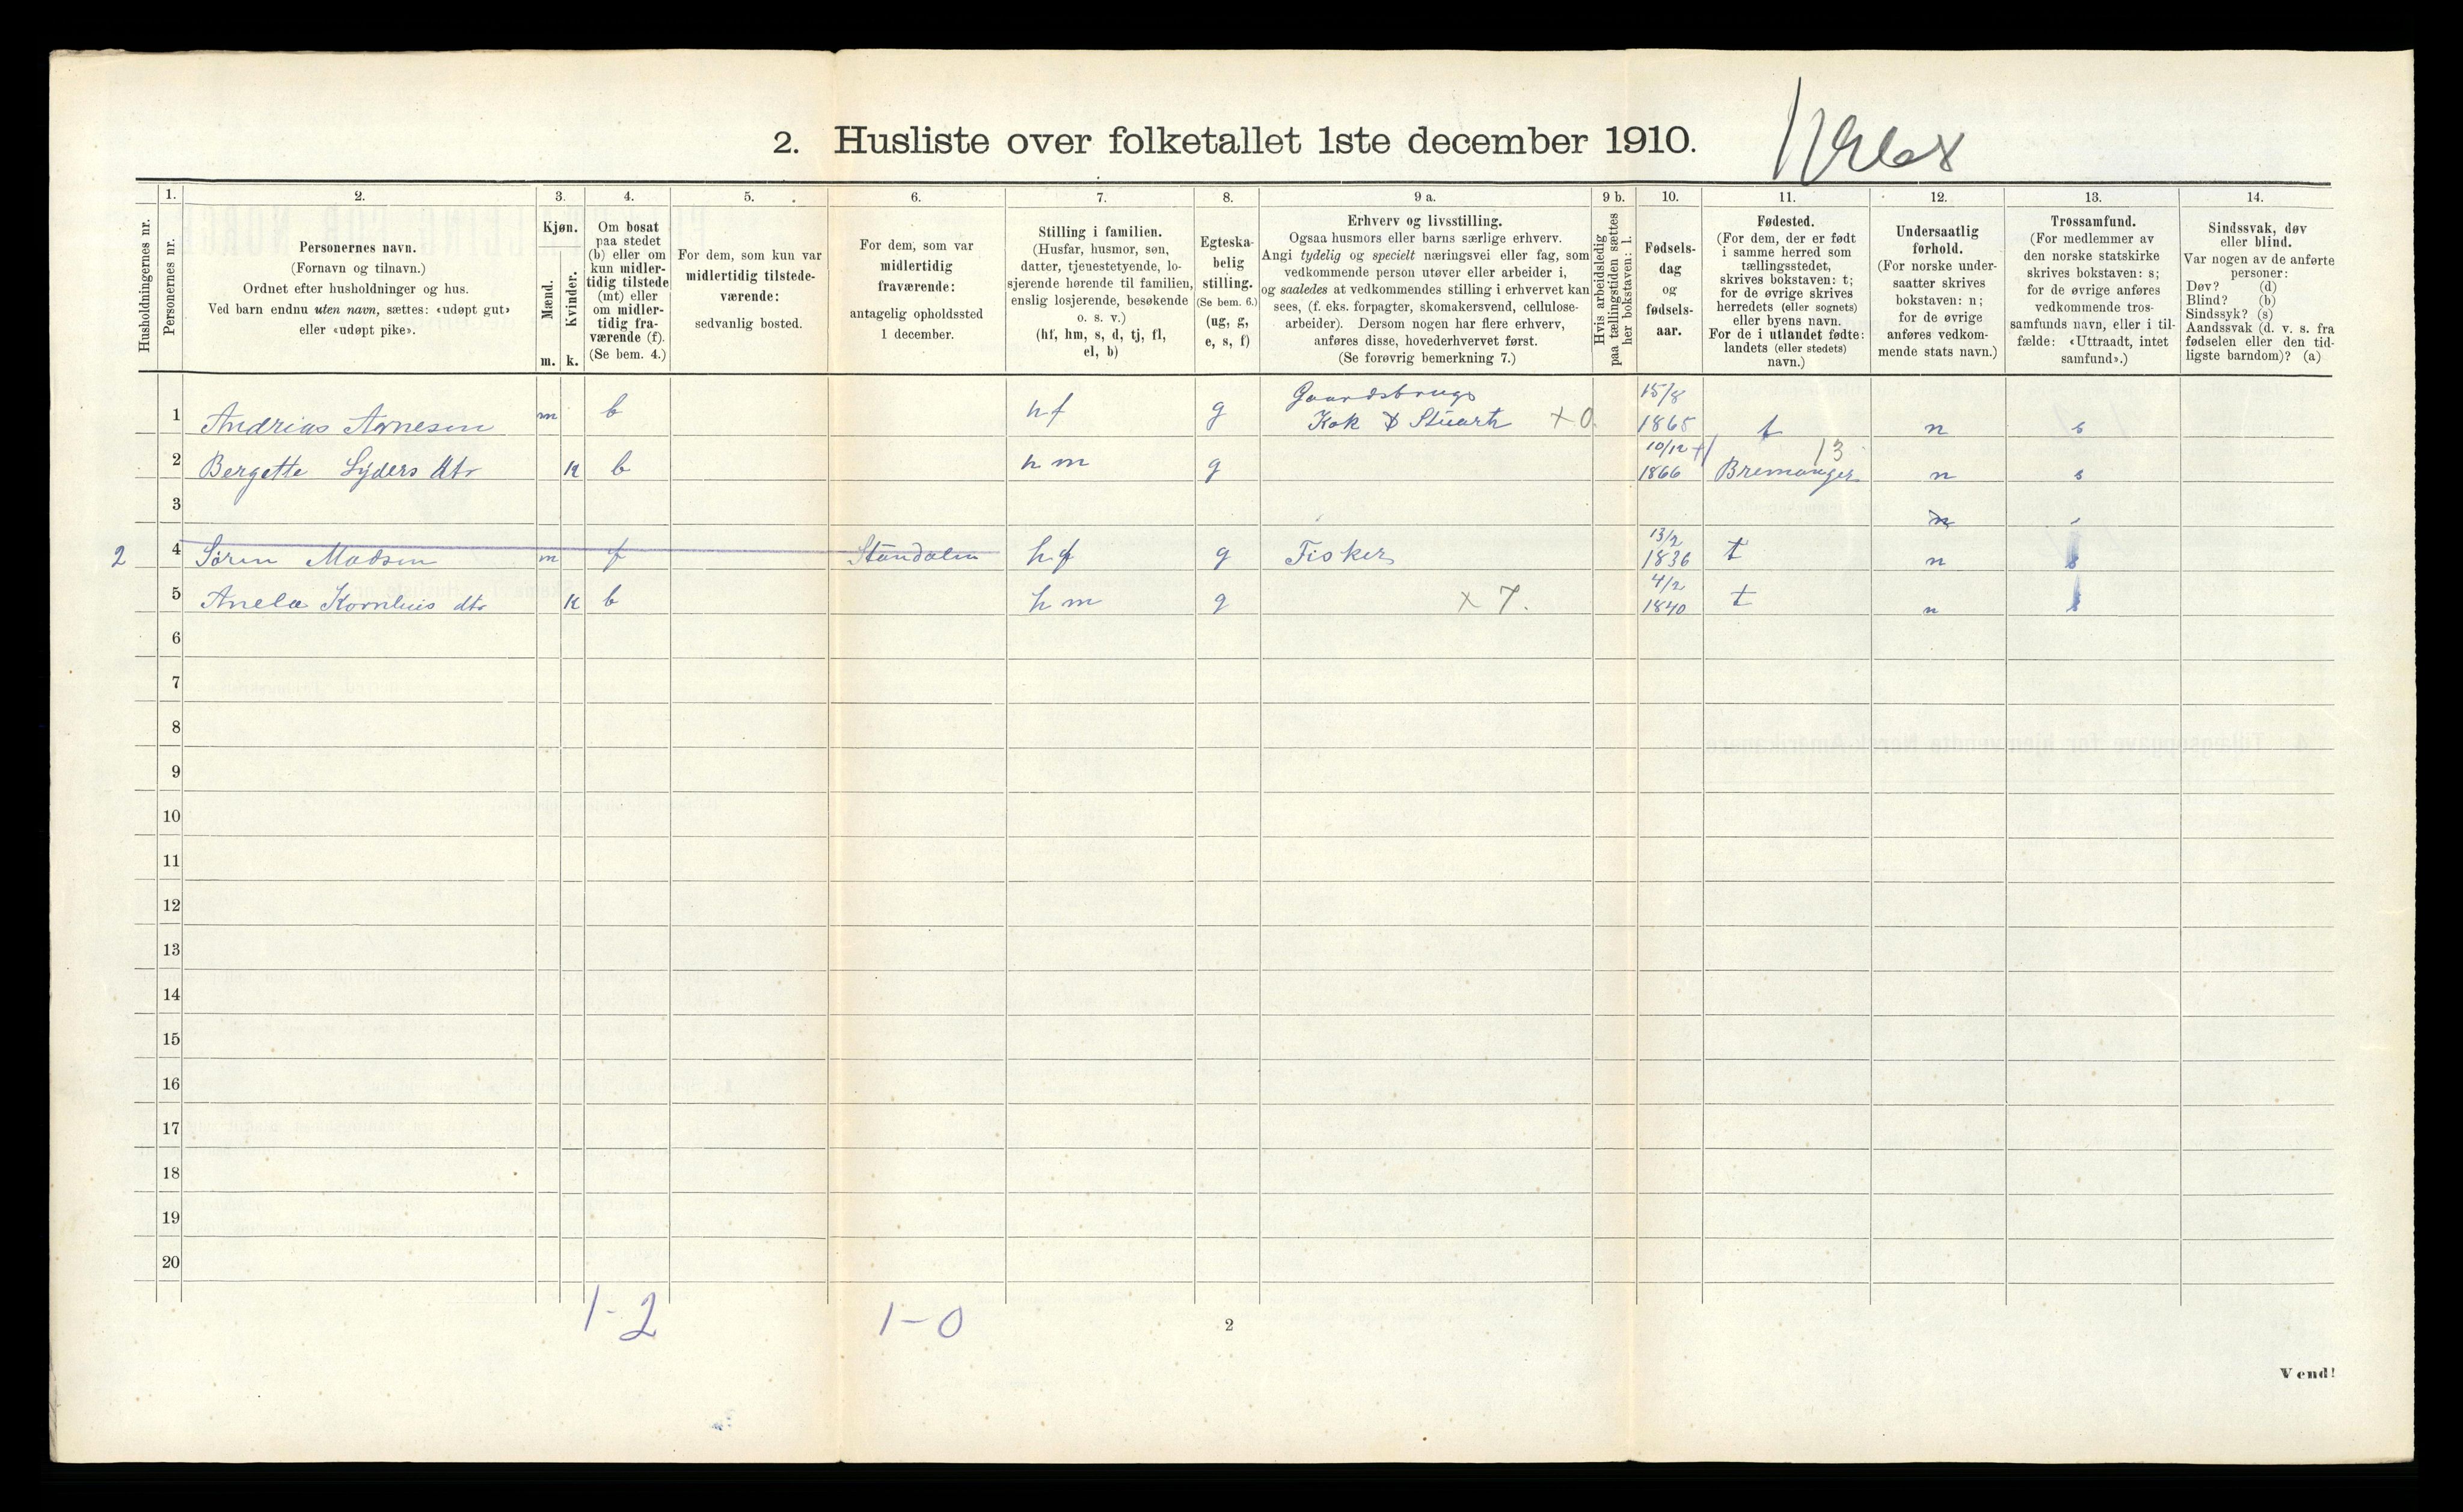 2. Husliste over folketallet 1ste december 1910.
Husholdningernes nr.
1.
Personernes nr.
2.
Personernes navn.
(Fornavn og tilnavn.)
Ordnet efter husholdninger og hus.
Ved barn endnu uten navn, sættes: «udøpt gut»
eller «udøpt pike».
3.
Kjøn.
Mænd.
m.
Kvinder.
k.
4.
Om bosat
paa stedet
(b) eller om
kun midler-
tidig tilstede
(mt) eller
om midler-
tidig fra-
værende (f).
(Se bem. 4.)
5.
For dem, som kun var
midlertidig tilstede-
værende:
sedvanlig bosted.
6.
For dem, som var
midlertidig
fraværende:
antagelig opholdssted
1 december.
7.
Stilling i familien.
(Husfar, husmor, søn,
datter, tjenestetyende, lo-
sjerende hørende til familien,
enslig losjerende, besøkende
o. s. v.)
(hf, hm, s, d, tj, fl,
el, b)
8.
Egteska-
belig
stilling.
(Se bem. 6.)
(ug, g,
e, s, f)
9 a.
Erhverv og livsstilling.
Ogsaa husmors eller barns særlige erhverv.
Angi tydelig og specielt næringsvei eller fag, som
vedkommende person utøver eller arbeider i,
og saaledes at vedkommendes stilling i erhvervet kan
sees, (f. eks. forpagter, skomakersvend, cellulose-
arbeider). Dersom nogen har flere erhverv,
anføres disse, hovederhvervet først.
(Se forøvrig bemerkning 7.)
9 b.
Hvis arbeidsledig
paa tællingstiden sættes
her bokstaven: l.
10.
Fødsels-
dag
og
fødsels-
aar.
11.
Fødested.
(For dem, der er født
i samme herred som
tællingsstedet,
skrives bokstaven: t;
for de øvrige skrives
herredets (eller sognets)
eller byens navn.
For de i utlandet fødte:
landets (eller stedets)
navn.)
12.
Undersaatlig
forhold.
(For norske under-
saatter skrives
bokstaven: n;
for de øvrige
anføres vedkom-
mende stats navn.)
13.
Trossamfund.
(For medlemmer av
den norske statskirke
skrives bokstaven: s;
for de øvrige anføres
vedkommende tros-
samfunds navn, eller i til-
fælde: «Uttraadt, intet
samfund».)
14.
Sindssvak, døv
eller blind.
Var nogen av de anførte
personer:
Døv? (d)
Blind? (b)
Sindssyk? (s)
Aandssvak (d. v. s. fra
fødselen eller den tid-
ligste barndom)? (a)
Gaardsbrugs 15/8
1 Andrias Arnesen m b hf g Kok & Stuart × 0 1865 t n s
10/12 13
2 Bergette Lyders dtr k b hm g 1866 Bremanger n s
3 n
13/2
2 4 Sören Madsen m f hf g Fisker 1836 t n s
4/2
5 Anela Kornlius dtr k b hm g × 7. 1840 t n s
6
7
8
9
10
11
12
13
14
15
16
17
18
19
20
1-2 1-0
2
Vend!